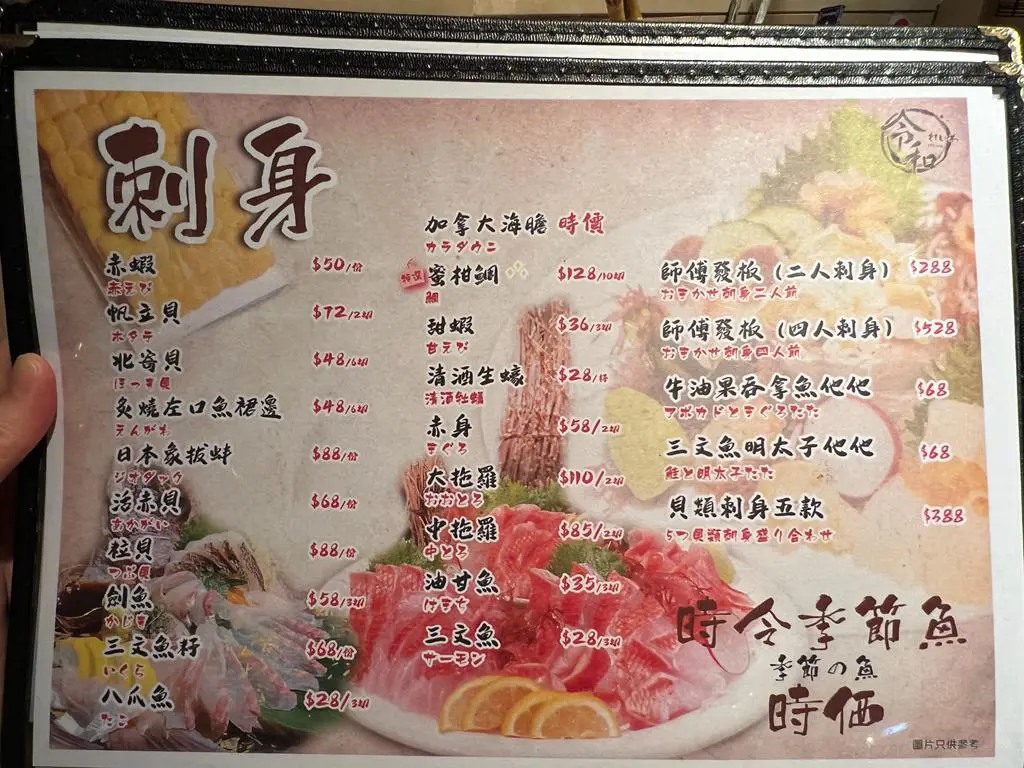 刺身
令和
赤蝦 $50/份
赤えび
帆立貝 $72/2切
ホタテ
北寄貝 $48/6切
ほっき貝
炙燒左口魚裙邊 $48/6切
えんがわ
日本象拔蚌 $88/份
ジオダック
活赤貝 $68/份
あかがい
粒貝 $88/份
つぶ貝
劍魚 $58/3切
かじき
三文魚籽 $68/份
いくら
八爪魚 $28/3切
たこ
加拿大海膽 時價
カラダウニ
特選 蜜柑鯛 $128/10切
鯛
甜蝦 $36/3切
甘えび
清酒生蠔 $28/件
清酒牡蠣
赤身 $58/2切
まぐろ
大拖羅 $110/2切
おおとろ
中拖羅 $85/2切
中とろ
油甘魚 $35/3切
はまち
三文魚 $28/3切
サーモン
師傅發板(二人刺身) $288
おまかせ刺身二人前
師傅發板(四人刺身) $528
おまかせ刺身四人前
牛油果吞拿魚他他 $68
アボカドとまぐろたた
三文魚明太子他他 $68
鮭と明太子たた
貝類刺身五款 $388
5つ貝類刺身盛り合わせ
時令季節魚
季節の魚
時価
圖片只供參考